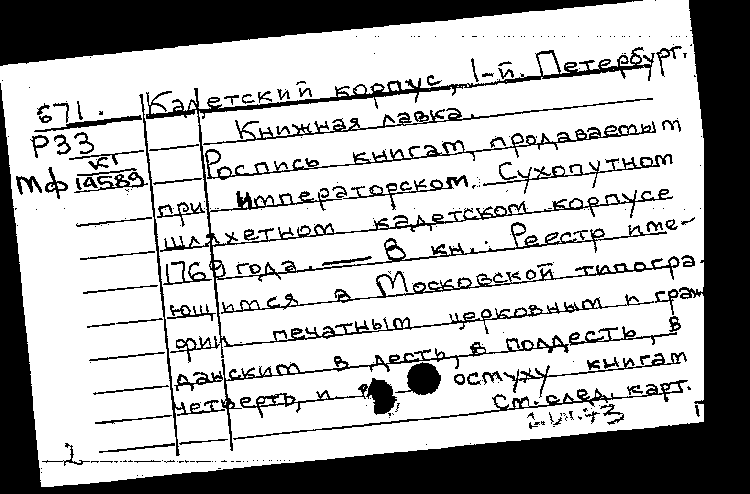 671. Кадетский корпус, 1-й. Петербург.
Р33 Книжная лавка.
К1
Мф 14589
Роспись книгам, продаваемым
при императорском Сухопутном
шляхетном кадетском корпусе
1769 года. — В кн.: Реестр име-
ющимся в Московской типогра-
фии печатным церковным и граж
данским в десть, в полдесть, в
четверть, и в осмуху книгам
См. след. карт.
2